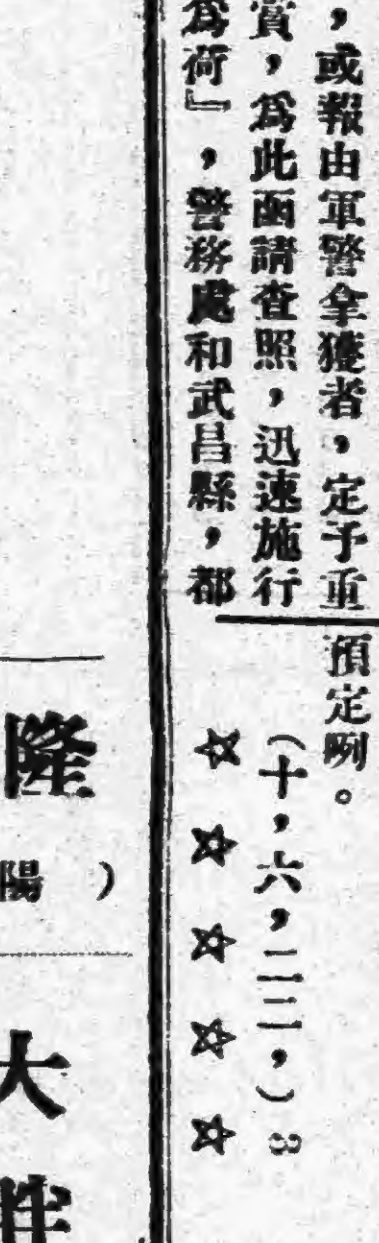 ，或報由軍警拿獲者，定予重
賞，爲此函請查照，迅速施行
爲荷』，警務處和武昌縣，都
預定咧。
（十，六，二二，）3
☆☆☆☆☆
隆
陽）
大